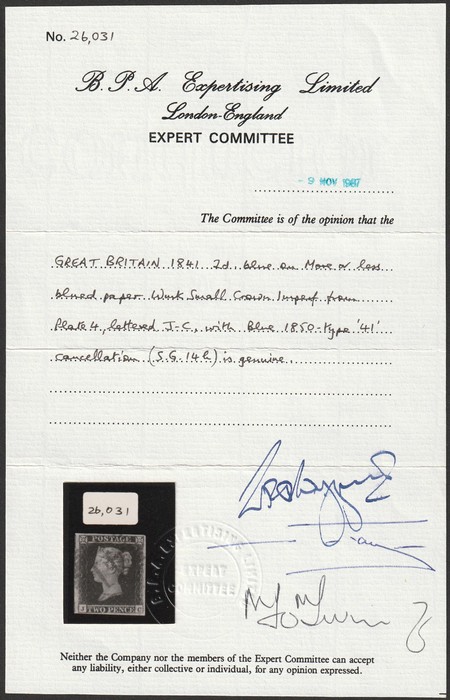 No. 26,031
B.P.A. Expertising Limited
London-England
EXPERT COMMITTEE
- 9 NOV 1987
The Committee is of the opinion that the
GREAT BRITAIN 1841 2d. blue on More or less
blued paper Wmk Small Crown Imperf from
Plate 4, lettered J-C, with Blue 1850-type '41'
cancellation (S.G. 14h) is genuine.
26,031
POSTAGE
J TWO PENCE C
EXPERT
COMMITTEE
Neither the Company nor the members of the Expert Committee can accept
any liability, either collective or individual, for any opinion expressed.